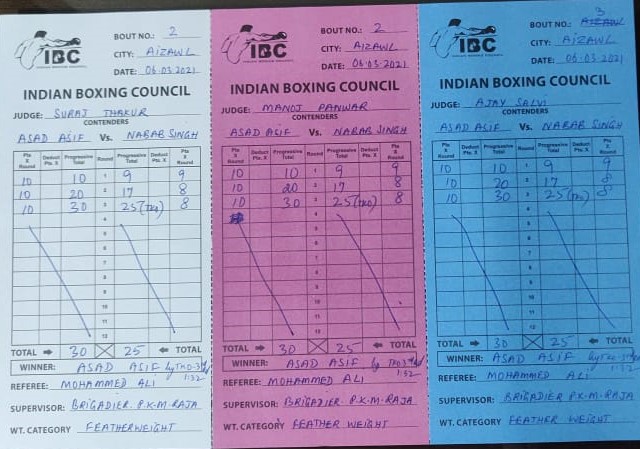 IBC
BOUT NO.: 2
CITY: AIZAWL
DATE: 06-03-2021
INDIAN BOXING COUNCIL
JUDGE: SURAJ THAKUR
CONTENDERS
ASAD ASIF Vs. NABAB SINGH
Pts X Round Deduct Pts. X Progressive Total Round Progressive Total Deduct Pts. X Pts X Round
10 10 1 9 9
10 20 2 17 8
10 30 3 25 (TKO) 8
4
5
6
7
8
9
10
11
12
TOTAL → 30 25 ← TOTAL
WINNER: ASAD ASIF by TKO-3rd
1:32
REFEREE: MOHAMMED ALI
SUPERVISOR: BRIGADIER P.K.M. RAJA
WT. CATEGORY FEATHERWEIGHT
IBC
BOUT NO.: 2
CITY: AIZAWL
DATE: 06-03-2021
INDIAN BOXING COUNCIL
JUDGE: MANOJ PANWAR
CONTENDERS
ASAD ASIF Vs. NABAB SINGH
Pts X Round Deduct Pts. X Progressive Total Round Progressive Total Deduct Pts. X Pts X Round
10 10 1 9 9
10 20 2 17 8
10 30 3 25 (TKO) 8
4
5
6
7
8
9
10
11
12
TOTAL → 30 25 ← TOTAL
WINNER: ASAD ASIF by TKO-3rd
1:32
REFEREE: MOHAMMED ALI
SUPERVISOR: BRIGADIER P.K.M. RAJA
WT. CATEGORY FEATHER WEIGHT
IBC
BOUT NO.: 3
CITY: AIZAWL
DATE: 06-03-2021
INDIAN BOXING COUNCIL
JUDGE: AJAY SALVI
CONTENDERS
ASAD ASIF Vs. NABAB SINGH
Pts X Round Deduct Pts. X Progressive Total Round Progressive Total Deduct Pts. X Pts X Round
10 10 1 9 9
10 20 2 17 8
10 30 3 25 (TKO) 8
4
5
6
7
8
9
10
11
12
TOTAL → 30 25 ← TOTAL
WINNER: ASAD ASIF by TKO-3rd
1:32
REFEREE: MOHAMMED ALI
SUPERVISOR: BRIGADIER P.K.M. RAJA
WT. CATEGORY FEATHER WEIGHT